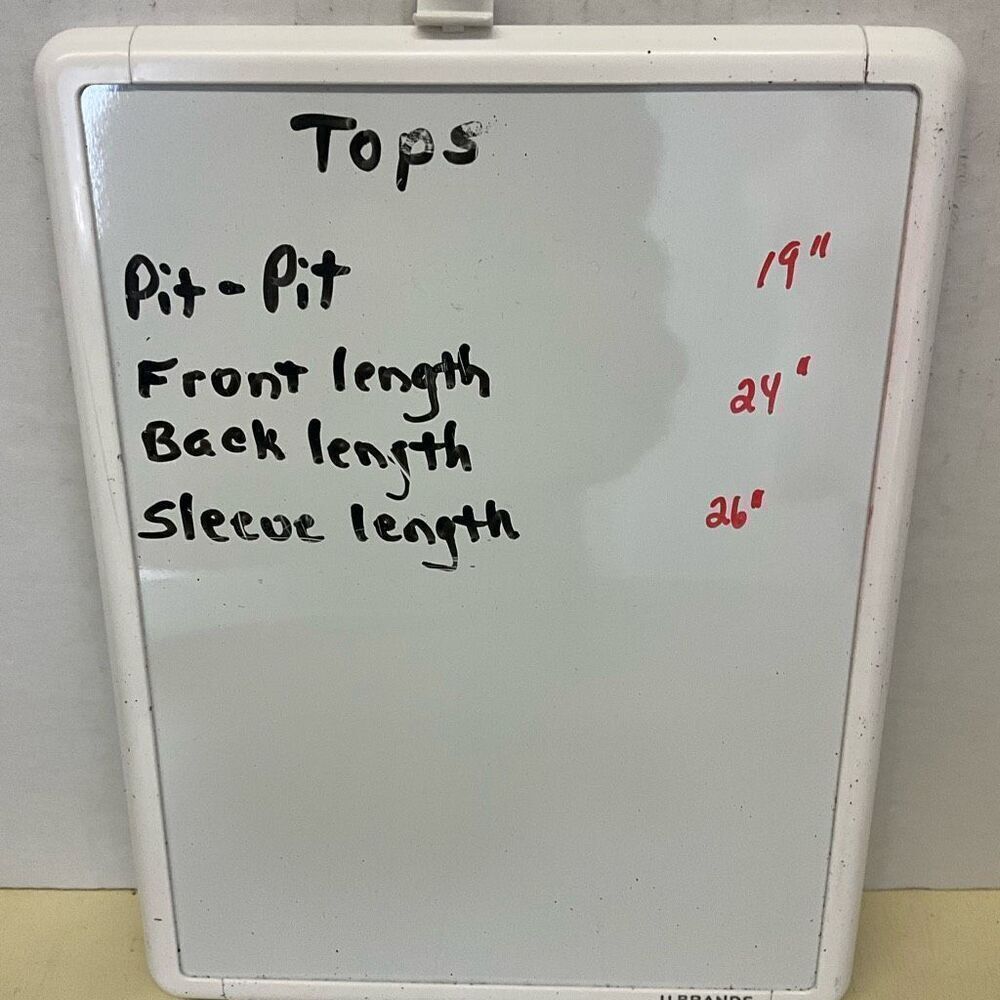 Tops
Pit-Pit 19"
Front length 24"
Back length
Sleeve length 26"
U BRANDS